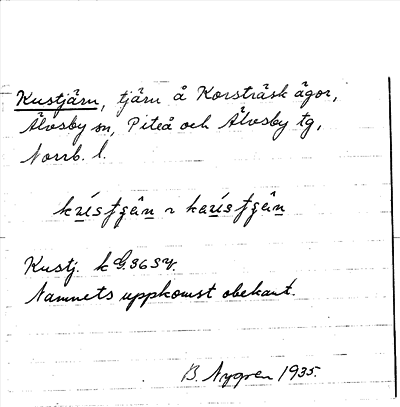 Kustjärn, tjärn å Korsträsk ägor,
Älvsby sn, Piteå och Älvsby tg,
Norrb. l.
Kustj. k G.36 SV.
Namnets uppkomst obekant.
B. Nygren 1935.